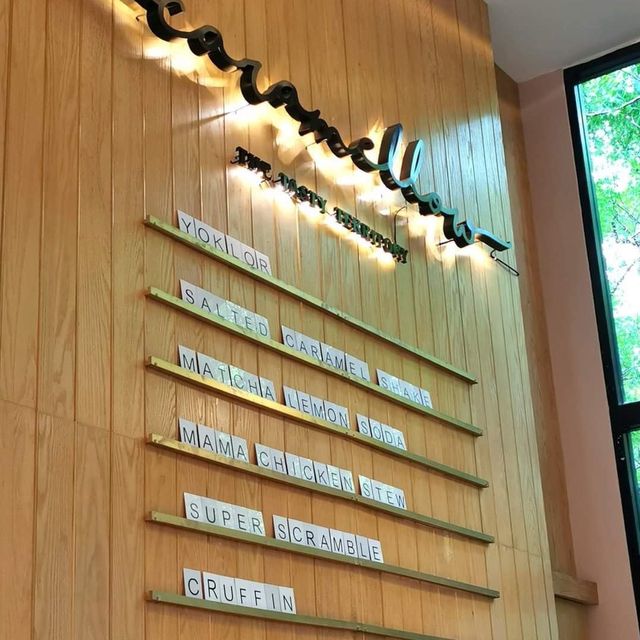 Caramellow
THE TASTY TERRITORY
YOKLOR
SALTED CARAMEL SHAKE
MATCHA LEMON SODA
MAMA CHICKEN STEW
SUPER SCRAMBLE
CRUFFIN